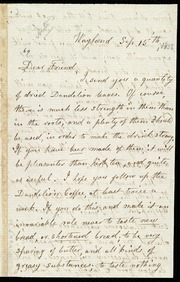 Wayland Sep. 15th
Dear Friend,
I send you a quantity
of dried Dandelion leaves. Of course,
there is much less strength in them than
in the roots, and a plenty of them should
be used, in order to make the drink strong.
If you have tea made of them it will
be pleasanter than both, too, and quite
as useful. I hope you follow up the
Dandelion Coffee at least twice a
week. If you do this, and make it an
invariable rule never to taste new
bread, or shortened bread, to be very
sparing of butter, and all kinds of
greasy substances, to take nothing